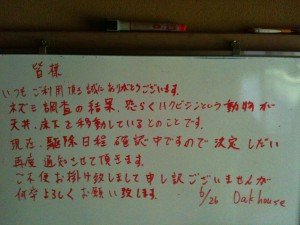 皆様
いつもご利用頂き誠にありがとうございます。
ネズミ調査の結果、恐らくハクビシンという動物が
天井、床下を移動しているとのことです。
現在、駆除日程確認中ですので決定しだい
再度通知させて頂きます。
ご不便お掛け致しまして申し訳ございませんが
何卒よろしくお願い致します。 6/26 Oakhouse